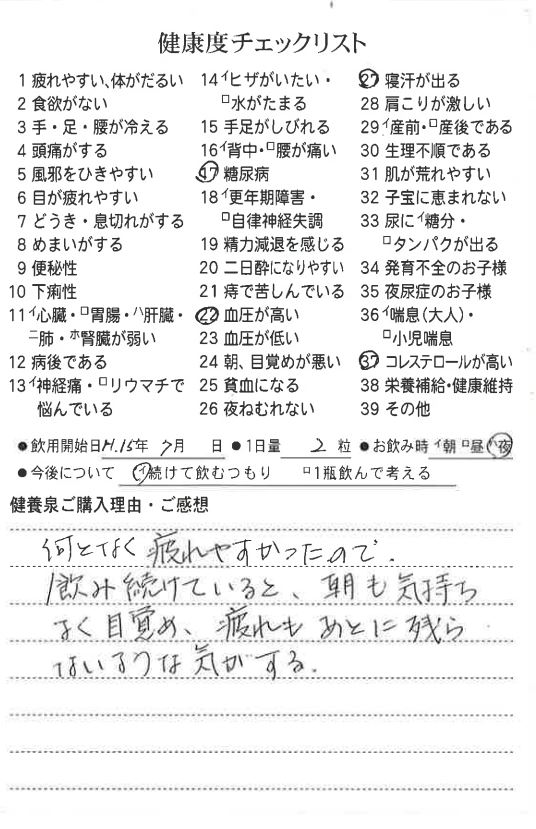 健康度チェックリスト
1 疲れやすい、体がだるい
2 食欲がない
3 手・足・腰が冷える
4 頭痛がする
5 風邪をひきやすい
6 目が疲れやすい
7 どうき・息切れがする
8 めまいがする
9 便秘性
10 下痢性
11 イ心臓・ロ胃腸・ハ肝臓・
ニ肺・ホ腎臓が弱い
12 病後である
13 イ神経痛・ロリウマチで
悩んでいる
14 イヒザがいたい・
ロ水がたまる
15 手足がしびれる
16 イ背中・ロ腰が痛い
17 糖尿病
18 イ更年期障害・
ロ自律神経失調
19 精力減退を感じる
20 二日酔になりやすい
21 痔で苦しんでいる
22 血圧が高い
23 血圧が低い
24 朝、目覚めが悪い
25 貧血になる
26 夜ねむれない
27 寝汗が出る
28 肩こりが激しい
29 イ産前・ロ産後である
30 生理不順である
31 肌が荒れやすい
32 子宝に恵まれない
33 尿にイ糖分・
ロタンパクが出る
34 発育不全のお子様
35 夜尿症のお子様
36 イ喘息(大人)・
ロ小児喘息
37 コレステロールが高い
38 栄養補給・健康維持
39 その他
●飲用開始日H.15年 7月 日 ●1日量 2 粒 ●お飲み時 イ朝 ロ昼 ハ夜
●今後について イ続けて飲むつもり ロ1瓶飲んで考える
健養泉ご購入理由・ご感想
何となく疲れやすかったので、
飲み続けていると、朝も気持ち
よく目覚め、疲れもあとに残ら
ないような気がする。